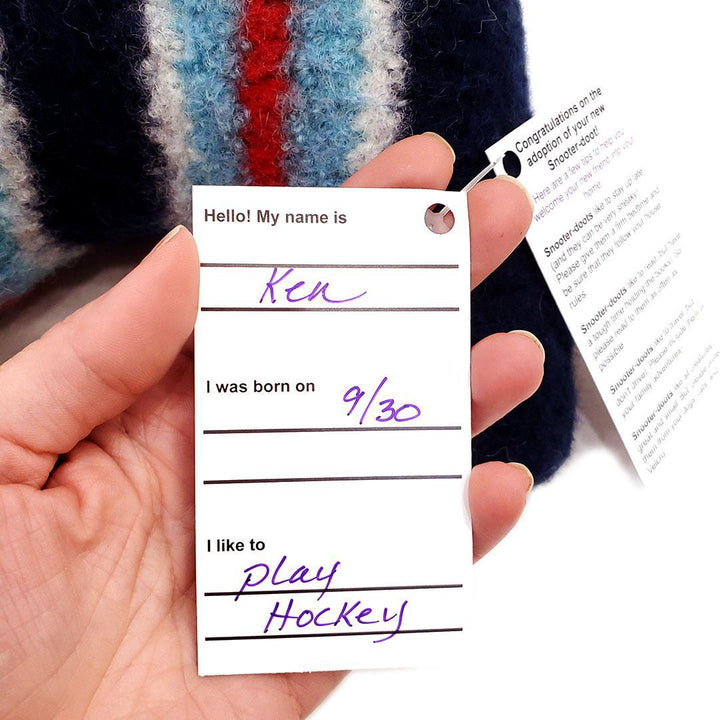 Hello! My name is
Ken
I was born on 9/30
I like to
play
Hockey
Congratulations on the
adoption of your new
Snooter-doot!
Here are a few tips to help you
welcome your new friend into your
home
Snooter-doots like to stay up late
(and they can be very sneaky)
Please give them a firm bedtime and
be sure that they follow your house
rules.
Snooter-doots like to read but have
a tough time holding the books. So
please read to them as often as
possible
Snooter-doots like to travel but
don't drive! Please include them in
your family adventures.
Snooter-doots like all creatures
great and small. But please
them from your dogs and
Velcro